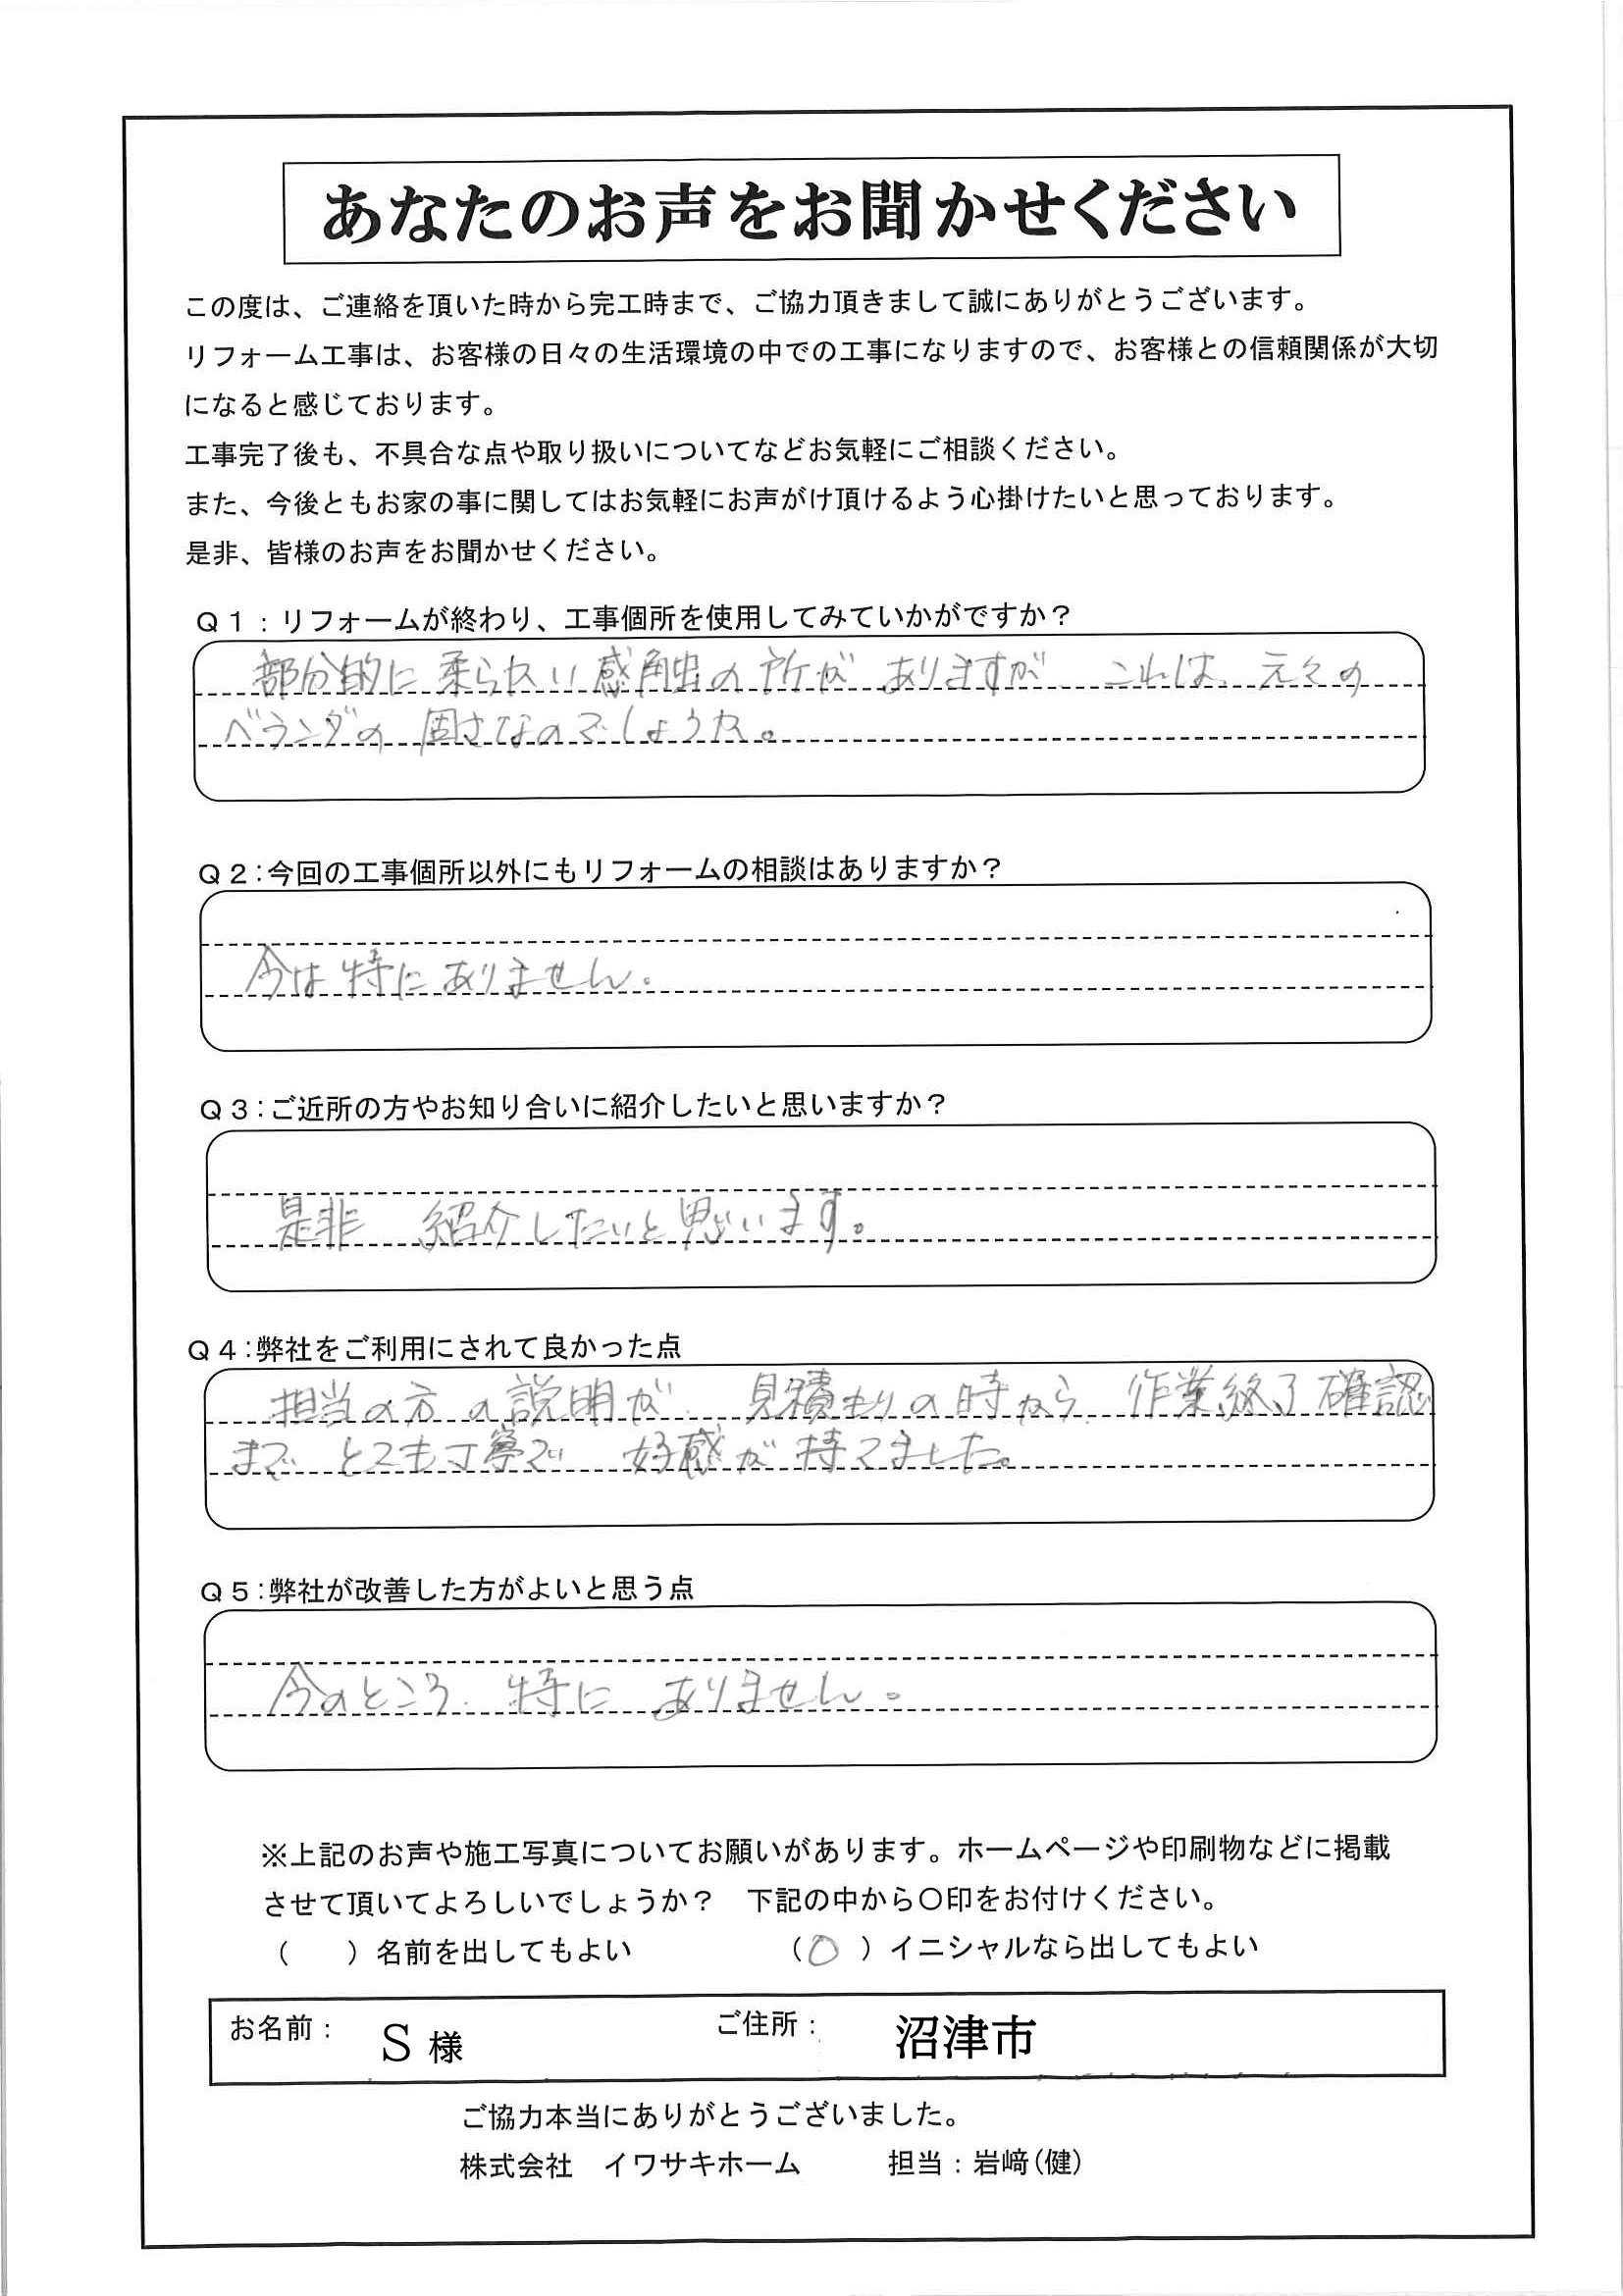 あなたのお声をお聞かせください
この度は、ご連絡を頂いた時から完工時まで、ご協力頂きまして誠にありがとうございます。
リフォーム工事は、お客様の日々の生活環境の中での工事になりますので、お客様との信頼関係が大切
になると感じております。
工事完了後も、不具合な点や取り扱いについてなどお気軽にご相談ください。
また、今後ともお家の事に関してはお気軽にお声がけ頂けるよう心掛けたいと思っております。
是非、皆様のお声をお聞かせください。
Q1：リフォームが終わり、工事個所を使用してみていかがですか？
部分的に柔らかい感触の所がありますが、これは、元々の
ベランダの固さなのでしょうか。
Q2：今回の工事個所以外にもリフォームの相談はありますか？
今は特にありません。
Q3：ご近所の方やお知り合いに紹介したいと思いますか？
是非 紹介したいと思います。
Q4：弊社をご利用にされて良かった点
担当の方の説明が、見積もりの時から、作業終了確認
まで、とても丁寧で 好感が持てました。
Q5：弊社が改善した方がよいと思う点
今のところ、特に ありません。
※上記のお声や施工写真についてお願いがあります。ホームページや印刷物などに掲載
させて頂いてよろしいでしょうか？　下記の中から〇印をお付けください。
（　　）名前を出してもよい　（〇）イニシャルなら出してもよい
お名前：　S 様　ご住所：　沼津市
ご協力本当にありがとうございました。
株式会社　イワサキホーム　担当：岩﨑(健)